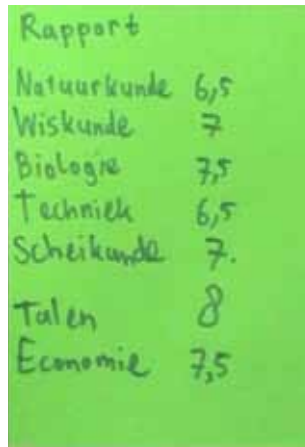 Rapport
Natuurkunde 6,5
Wiskunde 7
Biologie 7,5
Techniek 6,5
Scheikunde 7.
Talen 8
Economie 7,5